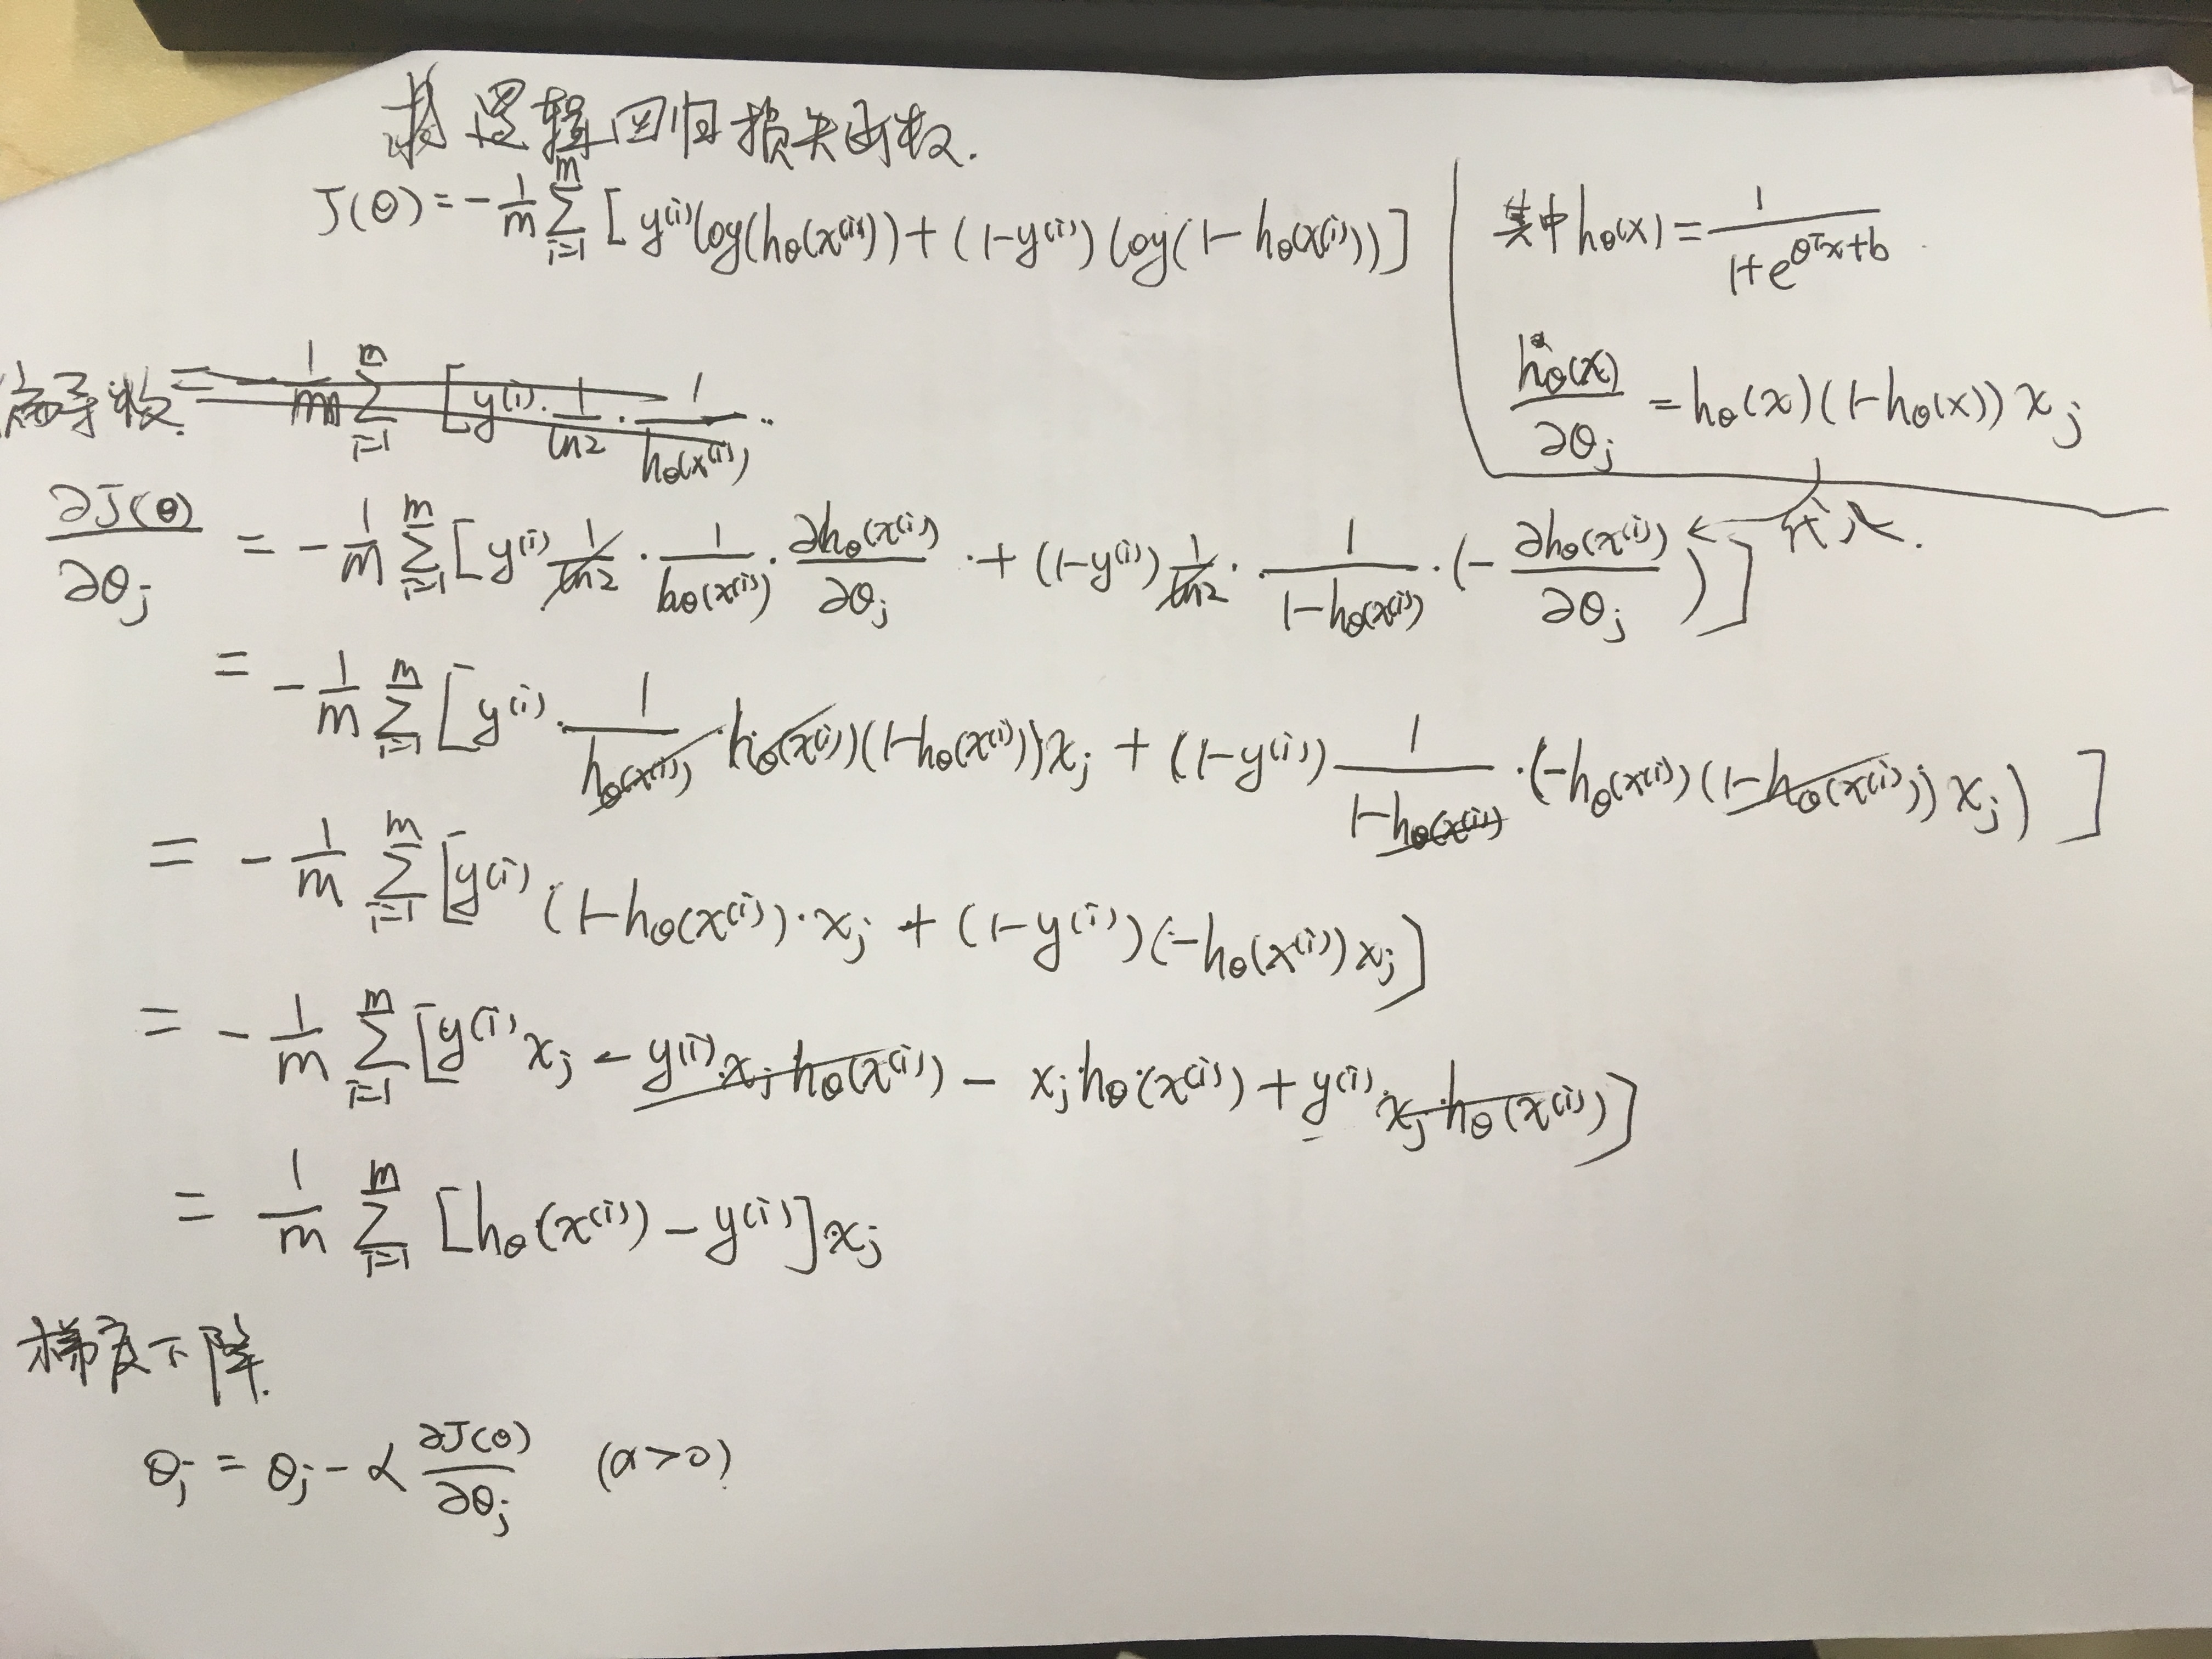 求逻辑回归损失函数.
J(θ) = -1/m Σ_{i=1}^{m} [y^{(i)}log(h_θ(x^{(i)})) + (1-y^{(i)})log(1-h_θ(x^{(i)}))]
其中h_θ(x) = 1/(1+e^{θ^Tx+b})
h_θ(x)/∂θ_j = h_θ(x)(1-h_θ(x))x_j
代入.
偏导数. = -1/m Σ_{i=1}^{m} [y^{(i)}·1/ln2·1/h_θ(x^{(i)})..
∂J(θ)/∂θ_j = -1/m Σ_{i=1}^{m} [y^{(i)} 1/ln2·1/h_θ(x^{(i)})·∂h_θ(x^{(i)})/∂θ_j·+(1-y^{(i)}) 1/ln2·1/(1-h_θ(x^{(i)}))·(-∂h_θ(x^{(i)})/∂θ_j)]
= -1/m Σ_{i=1}^{m} [y^{(i)}·1/h_θ(x^{(i)})·h_θ(x^{(i)})(1-h_θ(x^{(i)}))x_j + (1-y^{(i)}) 1/(1-h_θ(x^{(i)}))·(-h_θ(x^{(i)})(1-h_θ(x^{(i)}))x_j)]
= -1/m Σ_{i=1}^{m} [y^{(i)}(1-h_θ(x^{(i)})·x_j + (1-y^{(i)})(-h_θ(x^{(i)})x_j]
= -1/m Σ_{i=1}^{m} [y^{(i)}x_j - y^{(i)}·x_j h_θ(x^{(i)}) - x_j h_θ(x^{(i)}) + y^{(i)}x_j h_θ(x^{(i)})]
= 1/m Σ_{i=1}^{m} [h_θ(x^{(i)}) - y^{(i)}]x_j
梯度下降.
θ_j = θ_j - α ∂J(θ)/∂θ_j (α>0)